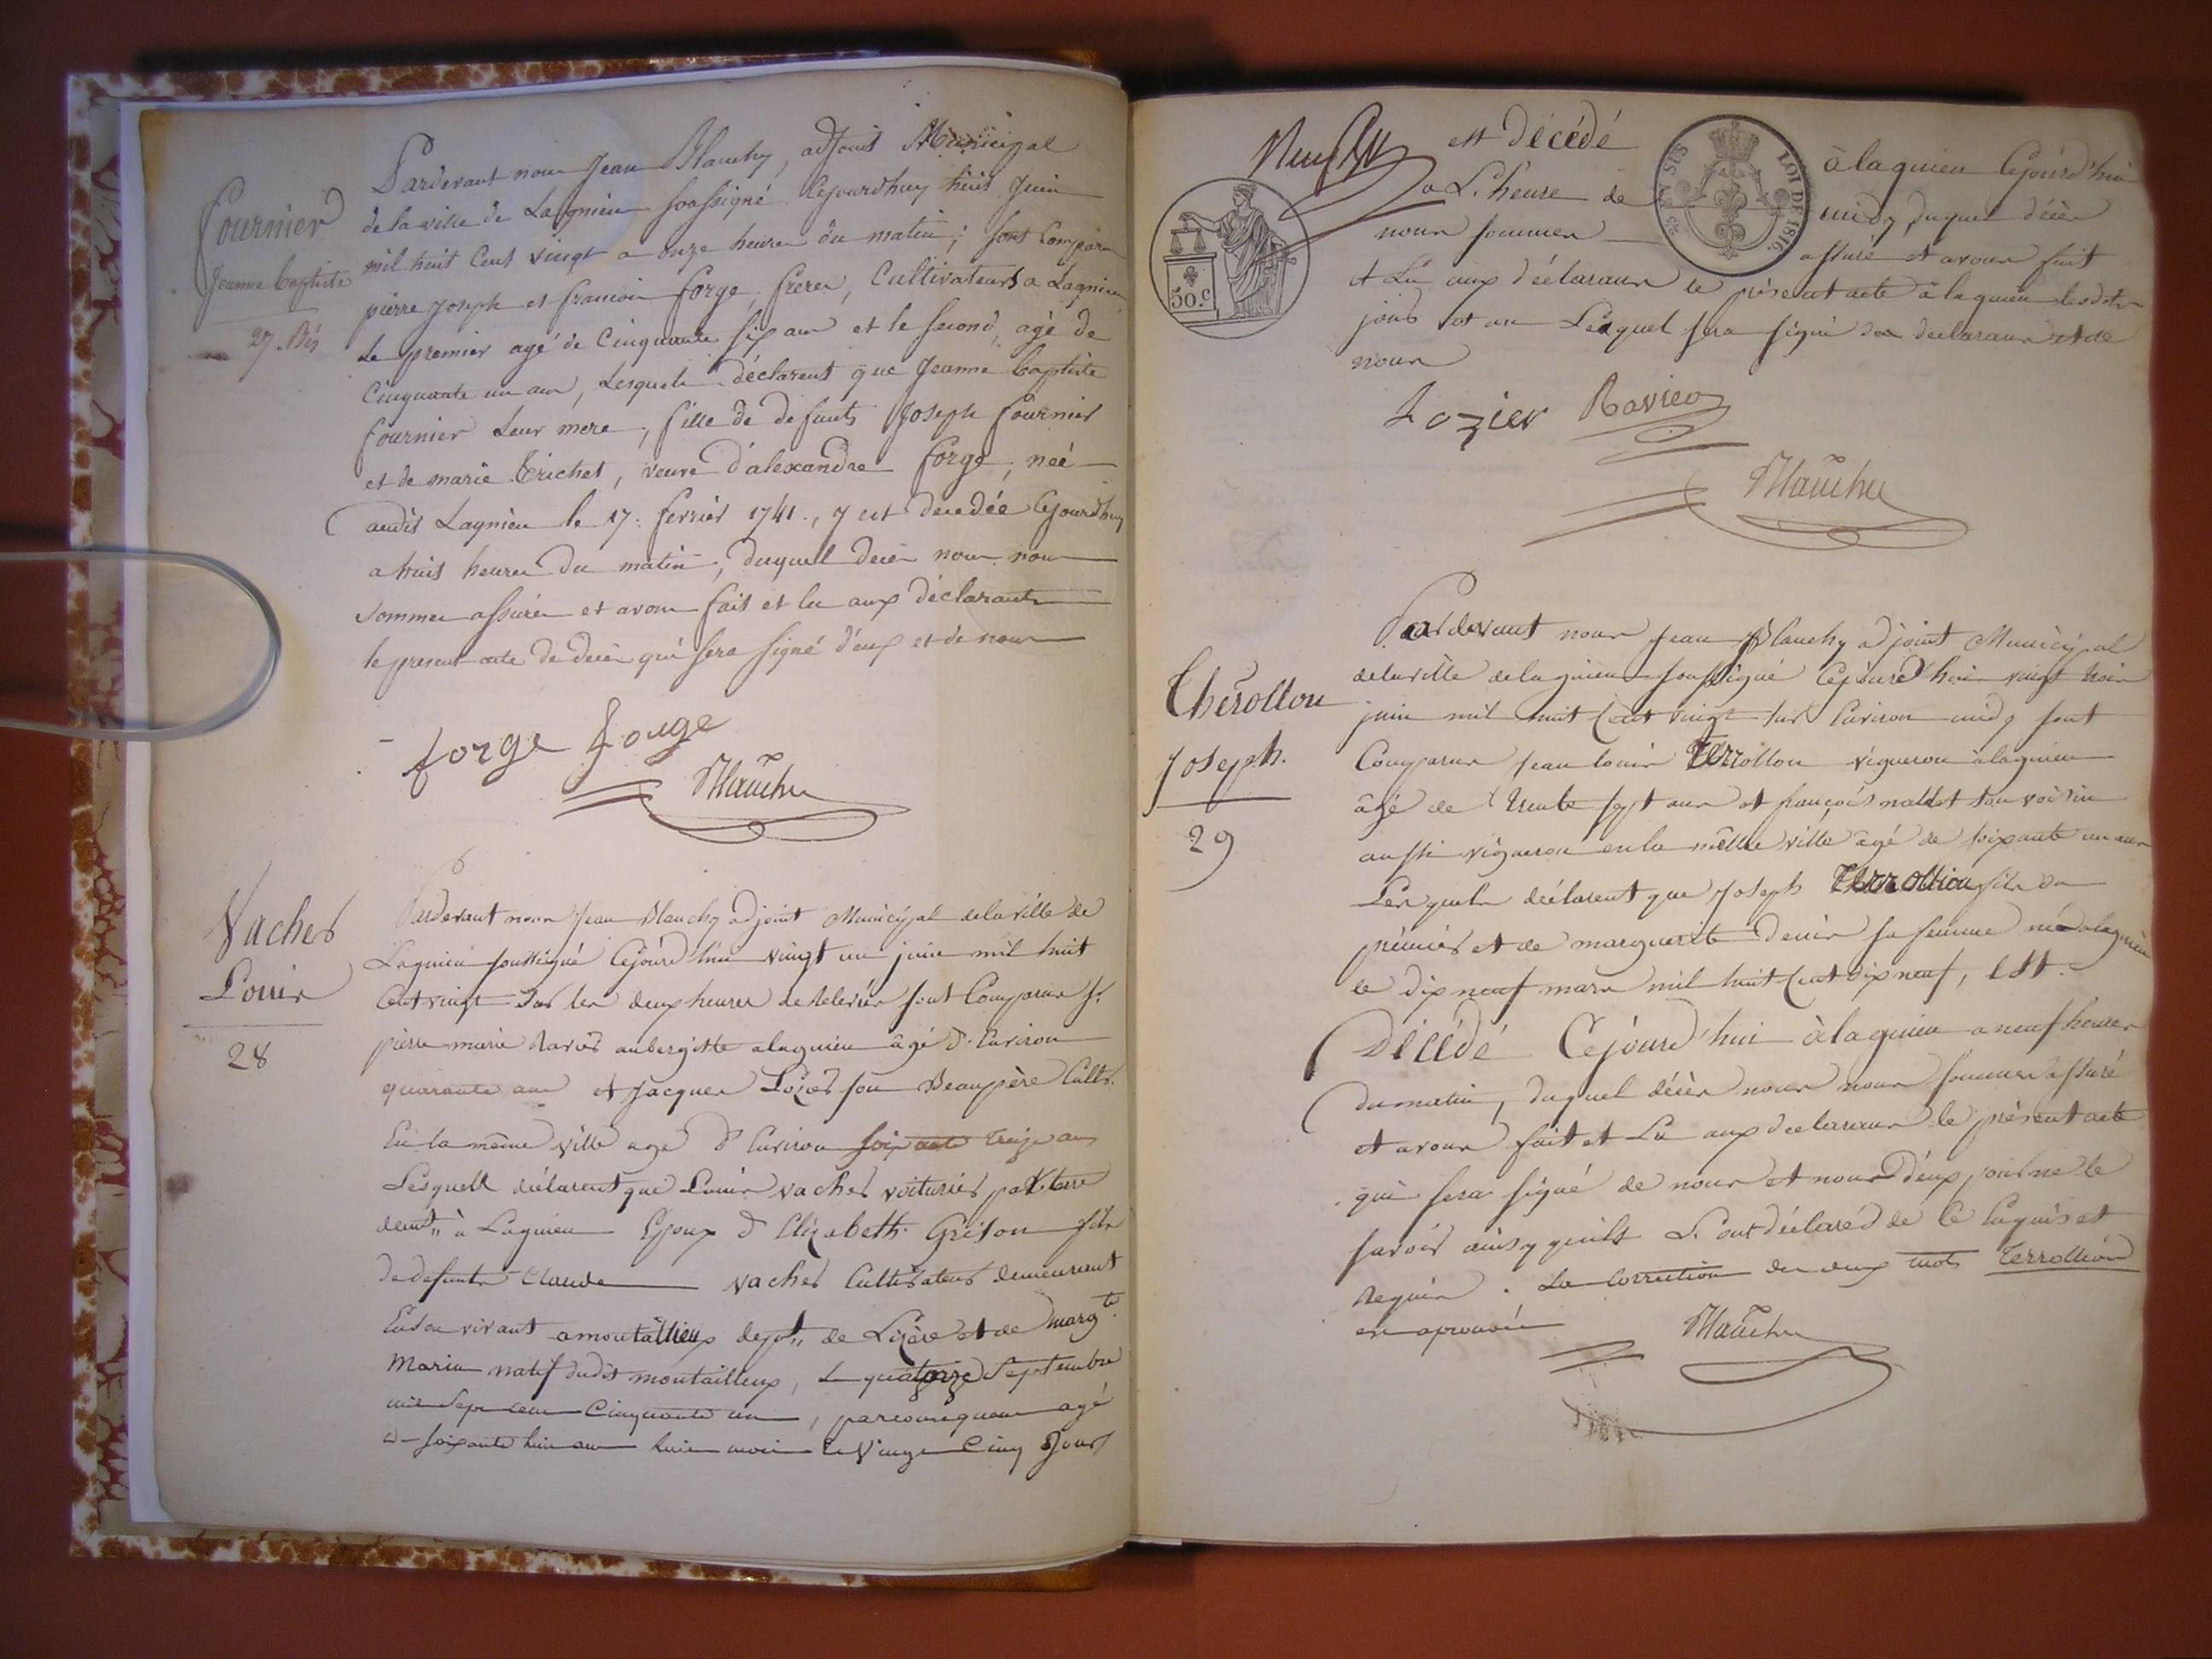 Fournier
Jeanne baptiste
27. Bis
Pardevant nous Jean Blanchy, adjoint Municipal
de la ville de Lagnieu soussigné Cejourdhuy huit Juin
mil huit Cent vingt a onze heures du matin; sont Comparu
pierre Joseph et francois forge, freres, Cultivateurs a Lagnieu
Le premier agé de Cinquante six ans et le second, agé de
Cinquante un ans, Lesquels déclarent que Jeanne baptiste
fournier Leur mere, fille de defunts Joseph fournier
et de marie Trichet, veuve d'alexandre forge, neé
audit Lagnieu le 17. fevrier 1741., y est decedée Cejourdhuy
a huit heures du matin, duquel deces nous nous
sommes assurés et avons fait et lu aux déclarants
le present acte de deces qui sera signé d'eux et de nous
forge forge
Blanchy
Vacher
Louis
28
Pardevant nous Jean Blanchy adjoint Municipal de la ville de
Lagnieu soussigné Cejourd'hui vingt un juin mil huit
Cent vingt sur les deux heures de relevée sont Comparus Sr.
pierre marie Ravier aubergiste a lagnieu âgé d'Environ
quarante ans et Jacques Lozier son Beaupère Cultr.
En la même ville agé d'Environ soixante treize ans
Lesquels déclarent que Louis vacher voiturier par terre
demt. à Lagnieu Epoux d'Elizabeth Grison fils
de defunts Claude vacher Cultivateur demeurant
En son vivant a montallieux dept. de Lizère et de Margte.
Marin natif dudit montailleux, le quatorze Septembre
mil Sept cent Cinquante un, par consequent agé
de soixante huit ans huit mois et Vingt Cinq Jours
est Décédé à lagnieu Cejourd'hui
a L'heure de midy, duquel décès
nous sommes assuré et avons fait
et Lu aux déclarans le présent acte à lagnieu lesdits
jour et an Lequel sera signé des declarans et de
nous
EN SUS
LOI DE 1816.
50.c
Lozier Ravier
Blanchy
Thérollon
Joseph.
29
Pardevant nous Jean Blanchy adjoint Municipal
de la ville de lagnieu soussigné Cejourd'hui vingt trois
juin mil huit Cent vingt sur Environ midy sont
Comparus Jean louis Terrollon vigneron à lagnieu
âgé de trente sept ans et françois mallet son voisin
aussi vigneron en la même ville âgé de soixante un ans
Lesquels déclarent que Joseph Terrollion fils du
prémier et de marguerite denis sa femme né à lagnieu
le dix neuf mars mil huit Cent dix neuf, Est
Décédé Cejourd'hui à lagnieu a neuf heures
du matin, duquel décès nous nous sommes assuré
et avons fait et Lu aux declarans le présent acte
qui sera signé de nous et non d'eux pour ne le
savoir ainsy qu'ils L'ont déclaré de Ce Enquis et
Requis. La Correction des deux mots Terrollion
est aprouvée
Blanchy